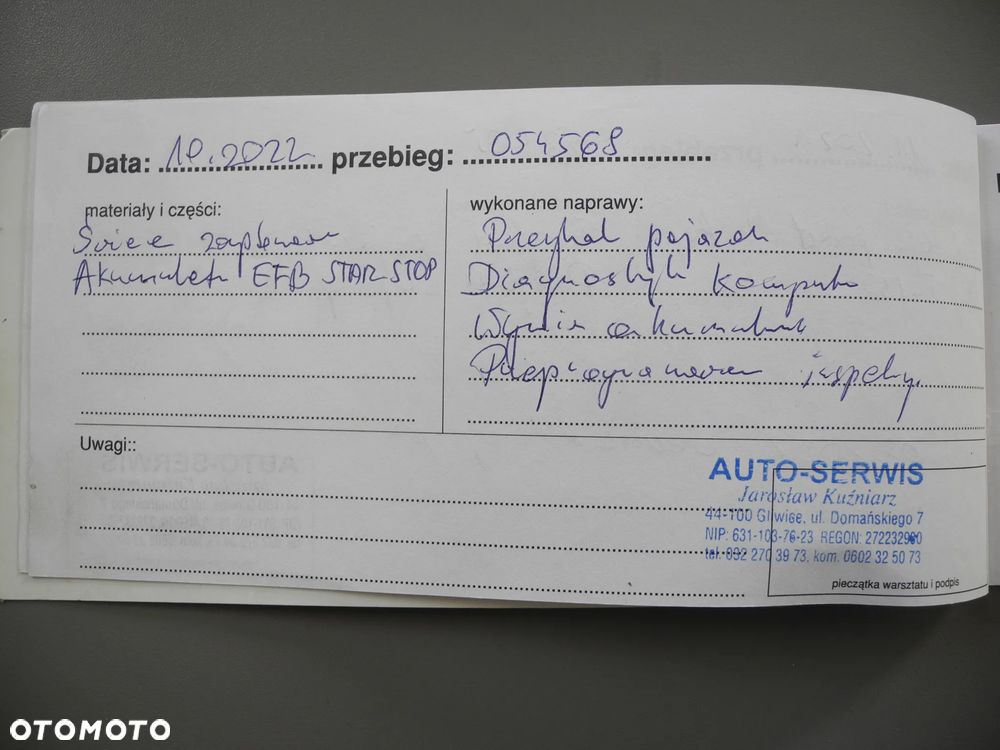 Data: 10.2022 przebieg: 054568
materiały i części:
Świece zapłonowe
Akumulator EFB STAR STOP
wykonane naprawy:
Przegląd pojazdu
Diagnostyka komput
Wymiana akumulat
Przeprogramowan inspekcy.
Uwagi::
AUTO-SERWIS
Jarosław Kuźniarz
44-100 Gliwice, ul. Domańskiego 7
NIP: 631-103-76-23 REGON: 272232980
tel. 032 270 39 73, kom. 0602 32 50 73
pieczątka warsztatu i podpis
OTOMOTO